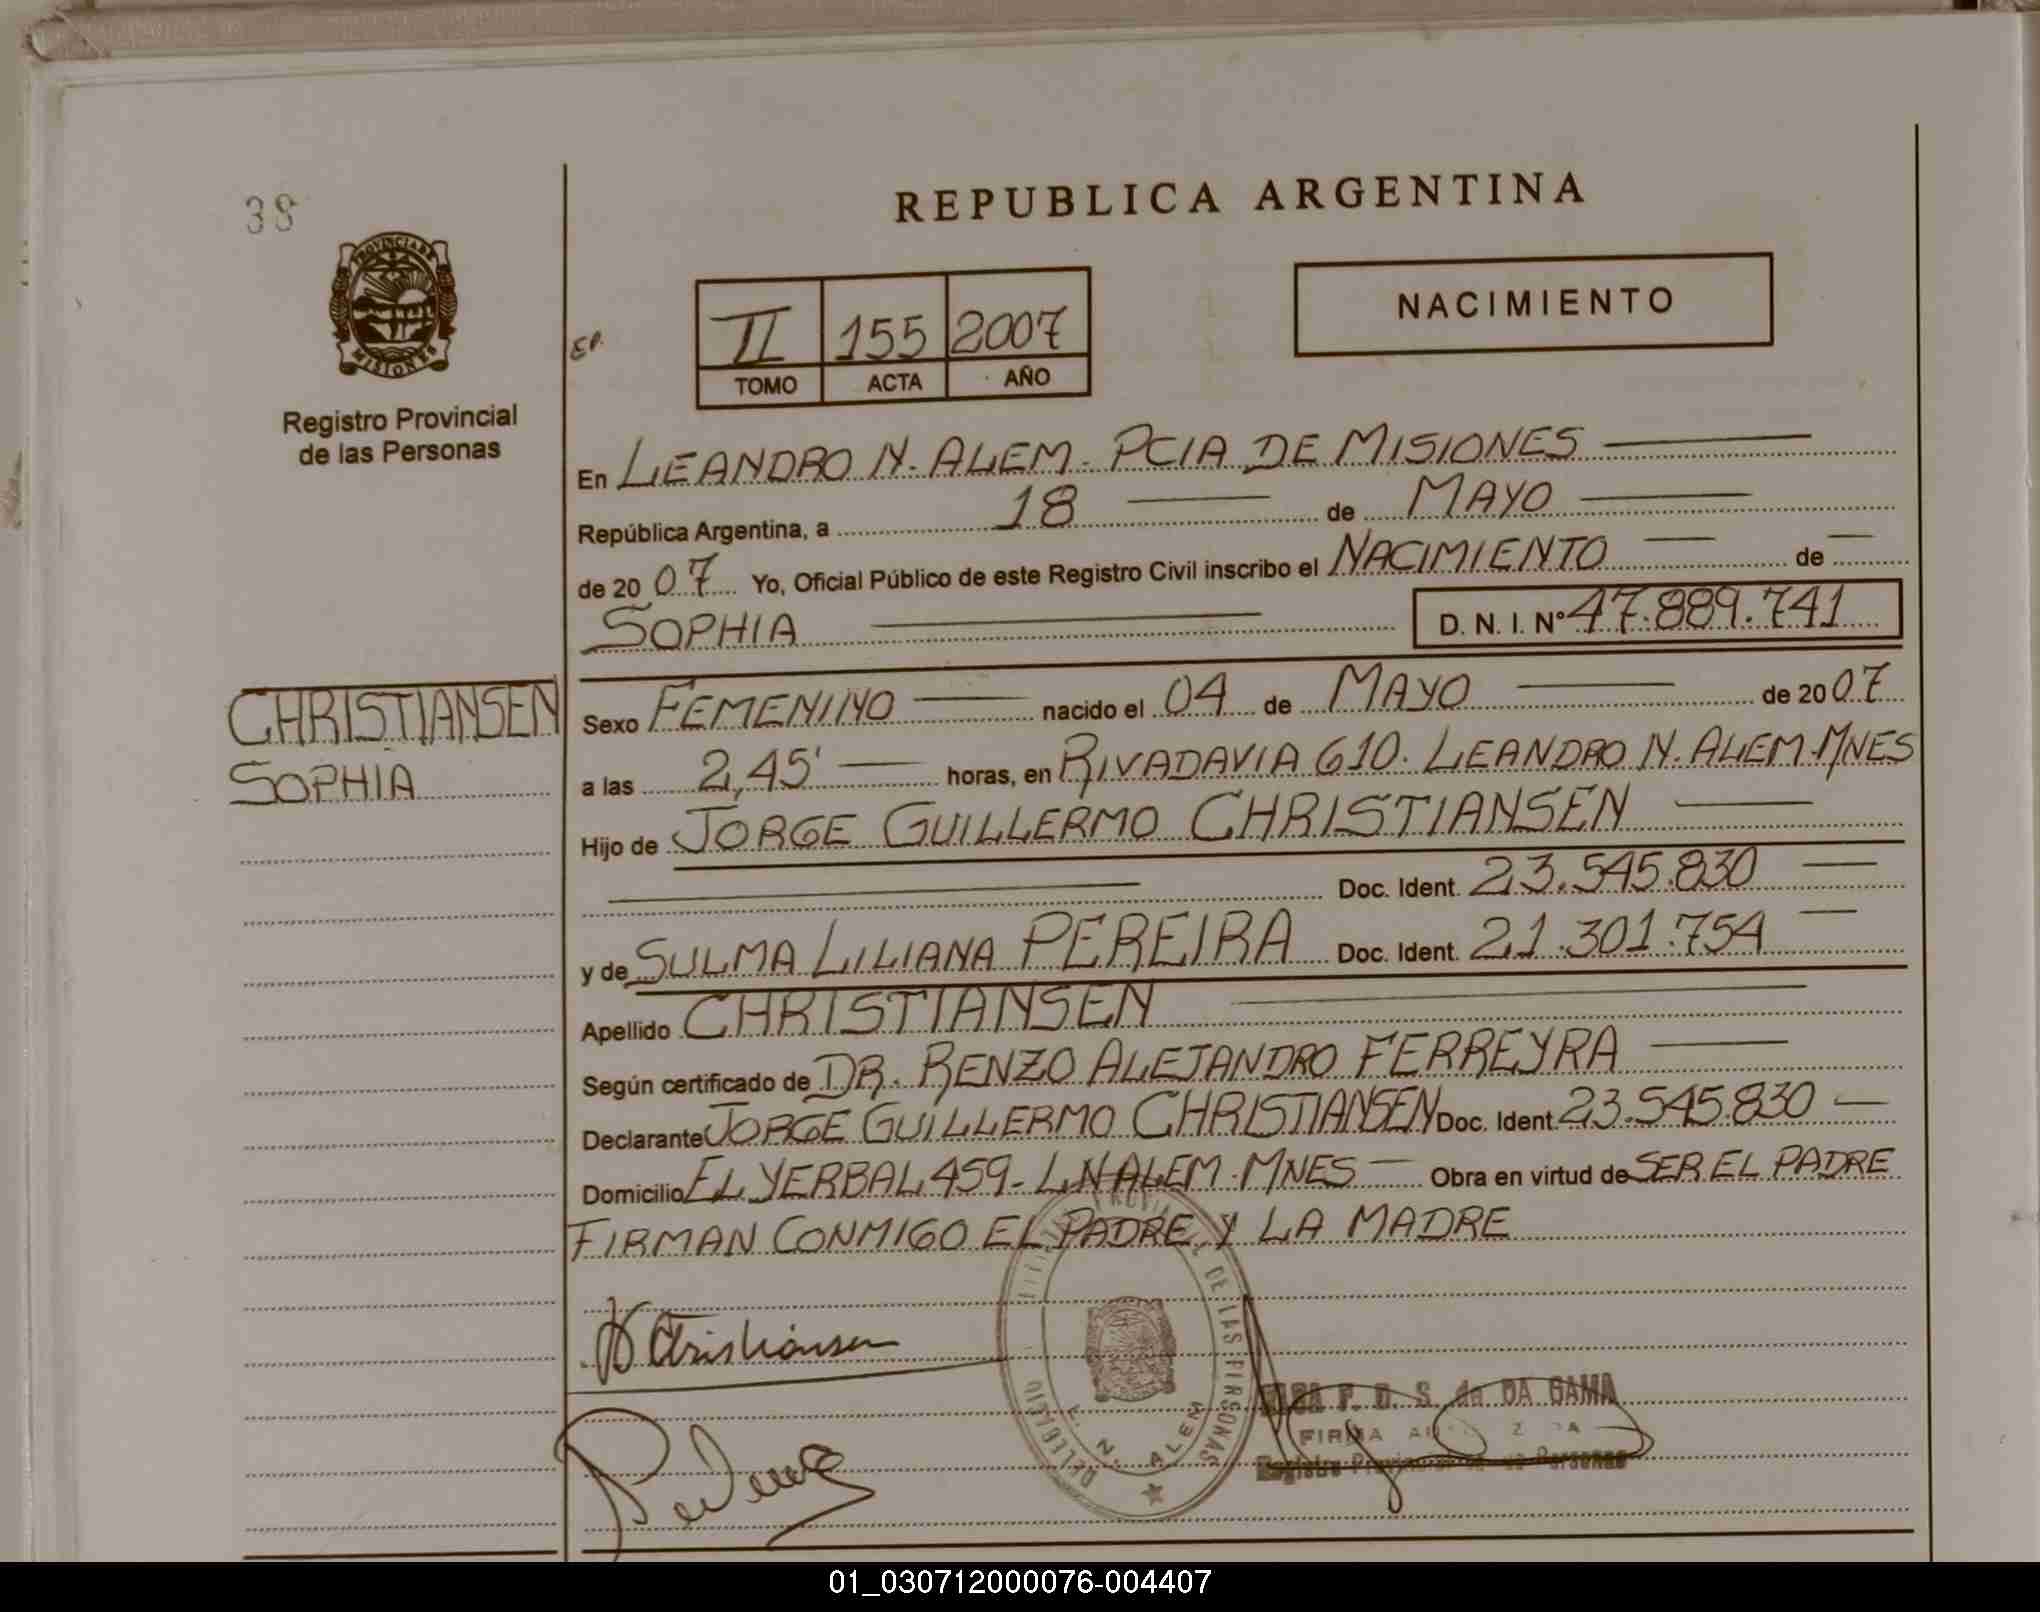 REPUBLICA ARGENTINA
38
PROVINCIA DE
MISIONES
Registro Provincial
de las Personas
II 155 2007
TOMO ACTA AÑO
NACIMIENTO
En LEANDRO N. ALEM. PCIA DE MISIONES
República Argentina, a 18 de MAYO
de 2007 Yo, Oficial Público de este Registro Civil inscribo el NACIMIENTO de
SOPHIA D. N. I. Nº 47.889.741
CHRISTIANSEN
SOPHIA
Sexo FEMENINO nacido el 04 de MAYO de 2007
a las 2,45' horas, en RIVADAVIA 610. LEANDRO N. ALEM-MNES
Hijo de JORGE GUILLERMO CHRISTIANSEN
Doc. Ident. 23.545.830
y de SULMA LILIANA PEREIRA Doc. Ident. 21.301.754
Apellido CHRISTIANSEN
Según certificado de DR. RENZO ALEJANDRO FERREYRA
Declarante JORGE GUILLERMO CHRISTIANSEN Doc. Ident. 23.545.830
Domicilio EL YERBAL 459- L N ALEM-MNES Obra en virtud de SER EL PADRE
FIRMAN CONMIGO EL PADRE Y LA MADRE
Christiansen
DE LAS PERSONAS
N. ALEM
P. D. S. de DA GAMA
FIRMA
Registro
01_030712000076-004407